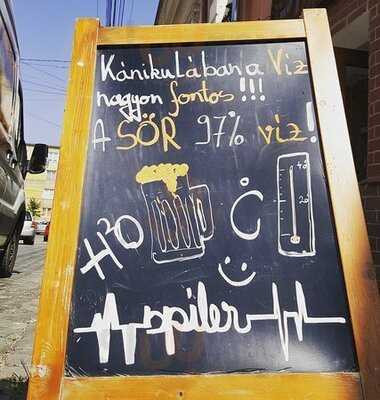 Kánikulában a Víz
nagyon fontos!!!
A SÖR 97% víz!
H²O
40
20
spiler